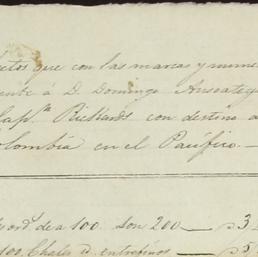 etos que con las marcas y nume
ente á D. Domingo
Cap.ⁿ Rickards con destino a
olombia en el Pacífico.—
ord. de a 100. son 200 — p 3
100. Chales d. entrefinos — p 5